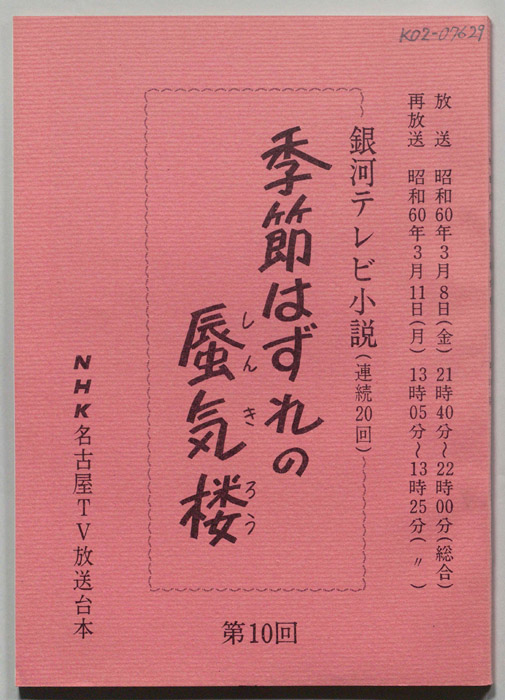 K02-07629
放送 昭和60年3月8日(金) 21時40分〜22時00分(総合)
再放送 昭和60年3月11日(月) 13時05分〜13時25分(〃)
銀河テレビ小説(連続20回)
季節はずれの
蜃気楼
しんきろう
NHK名古屋TV放送台本
第10回